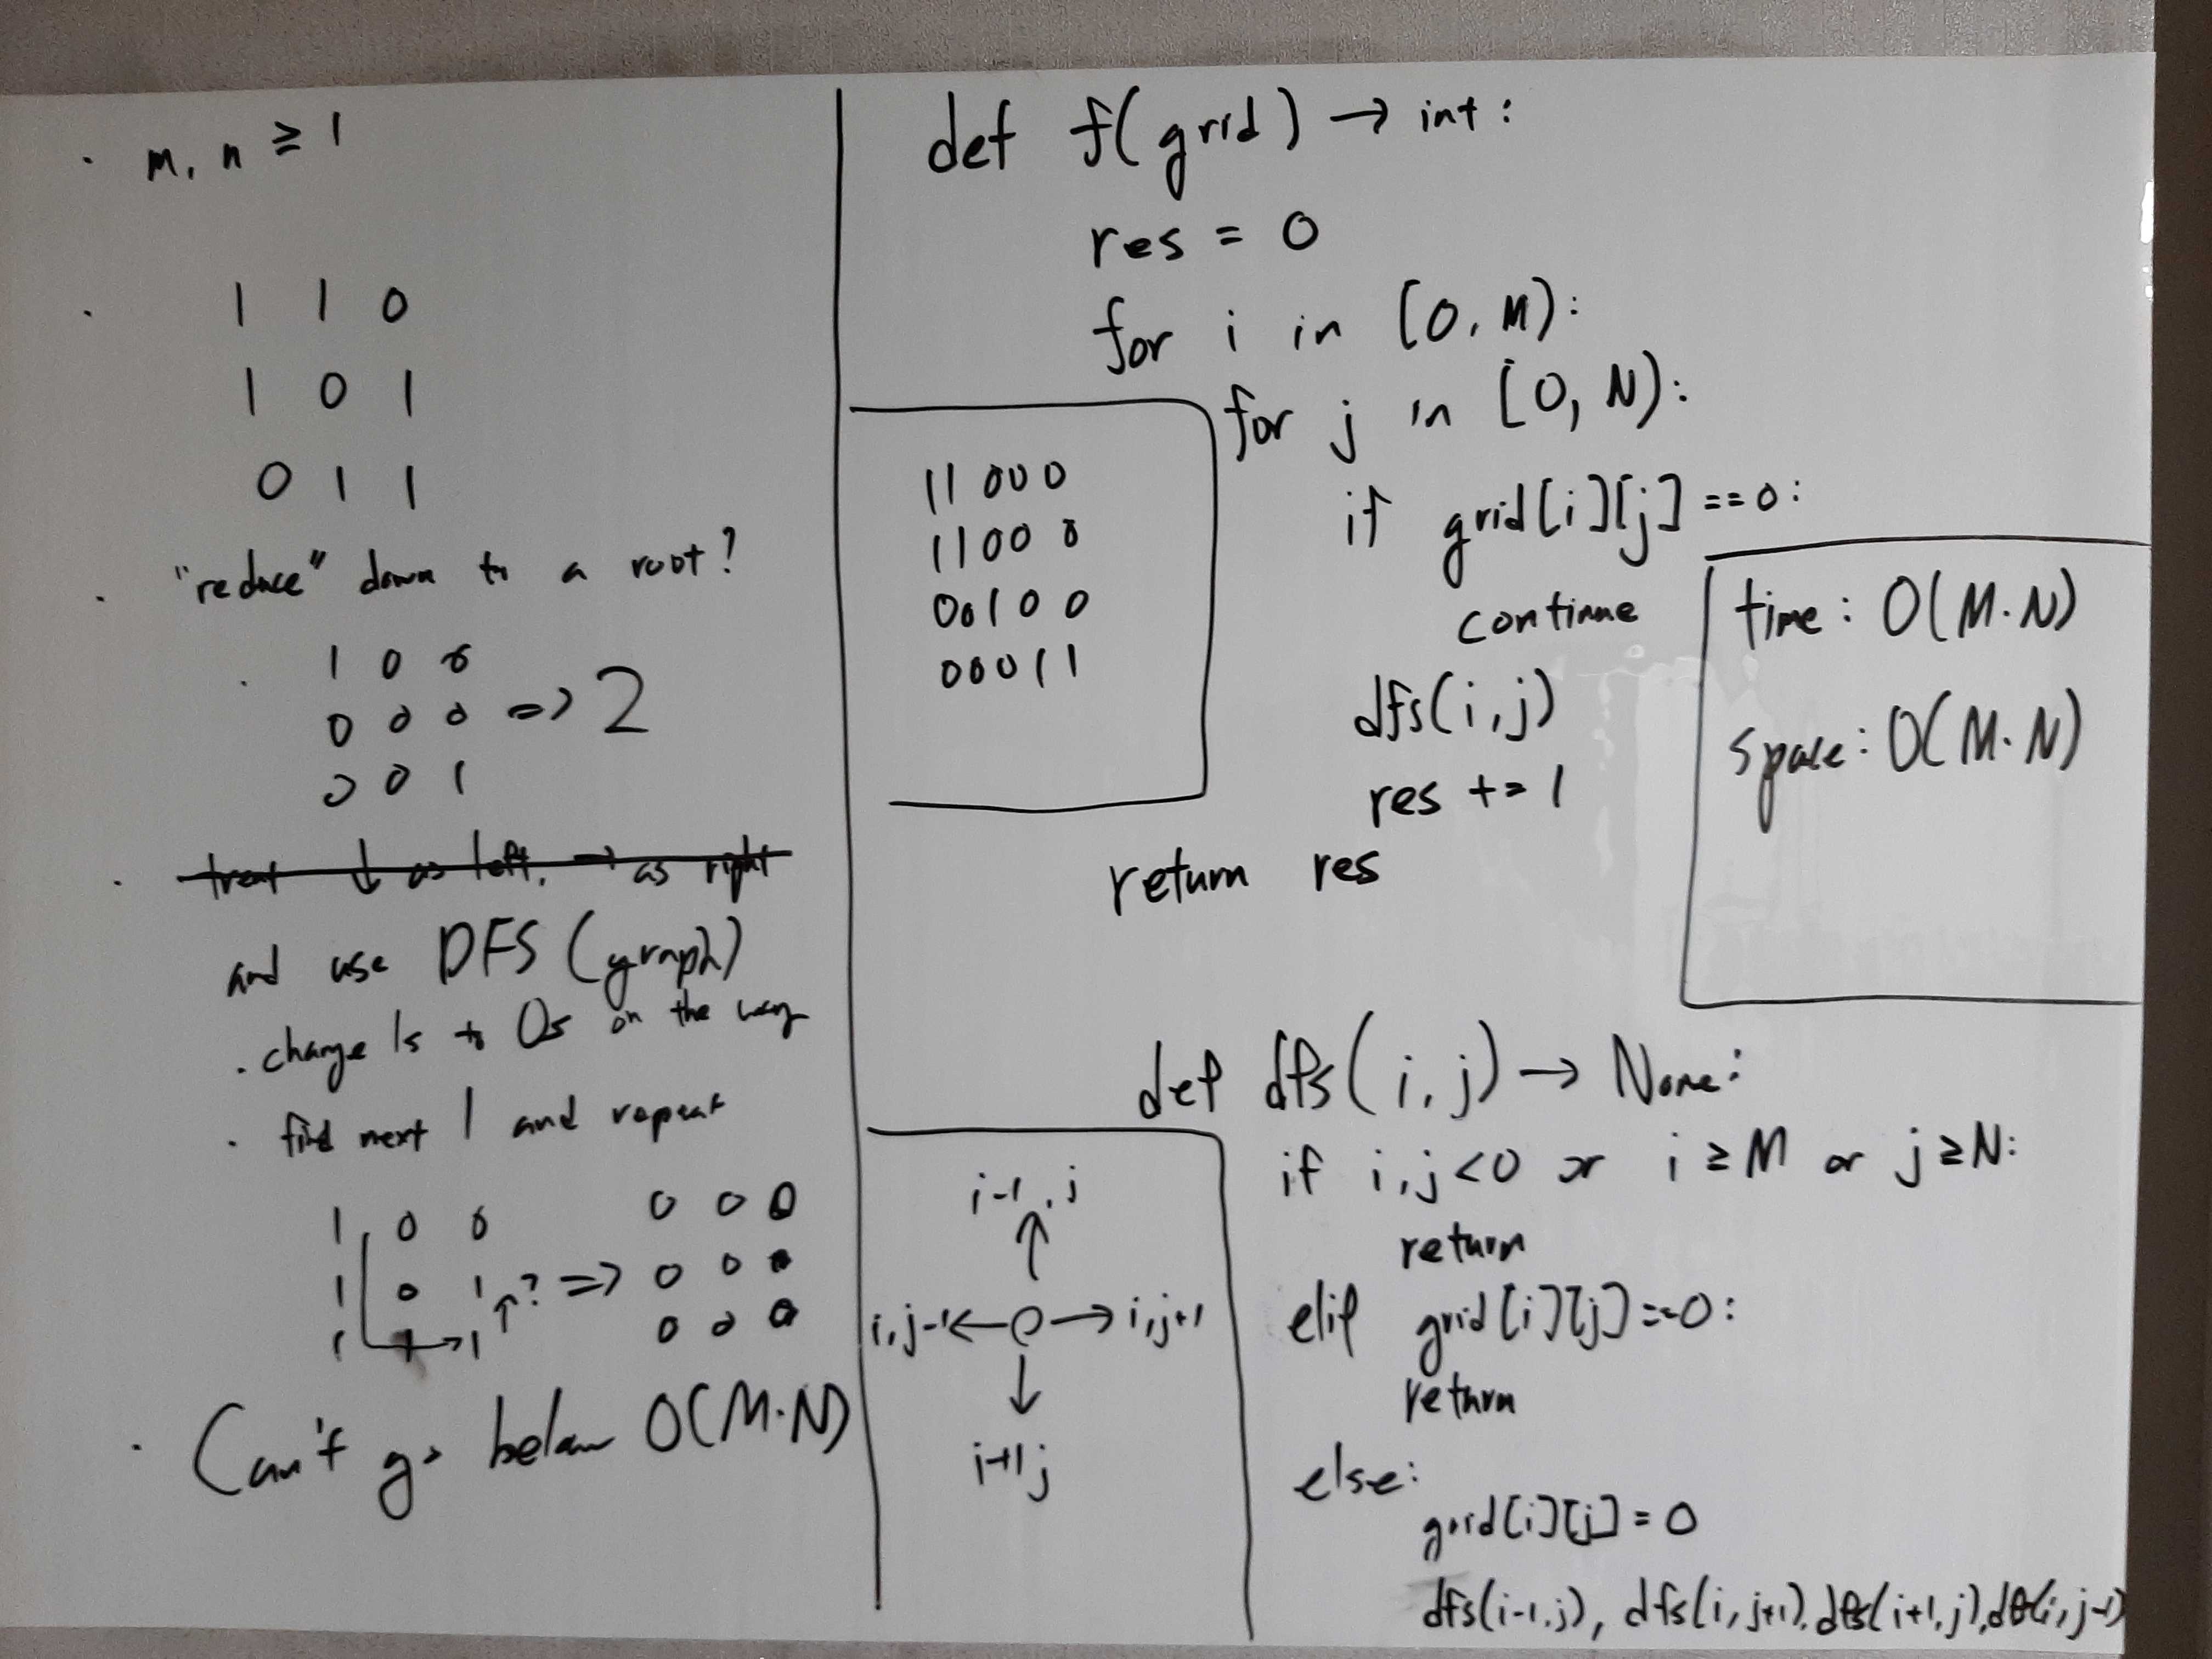 · m, n ≥ 1
· 1 1 0
1 0 1
0 1 1
· "reduce" down to a root?
· 1 0 0
0 0 0 => 2
0 0 1
· treat ↓ as left, → as right
and use DFS (graph)
· change 1s to 0s on the way
· find next 1 and repeat
1 0 0 0 0 0
1 0 1 ↑? => 0 0 0
1 1 → 1 0 0 0
· Can't go below O(M·N)
def f(grid) → int:
res = 0
for i in [0, M):
for j in [0, N):
if grid[i][j] == 0:
continue
dfs(i,j)
res += 1
return res
11000
11000
00100
00011
time: O(M·N)
space: O(M·N)
def dfs(i,j) → None:
if i,j<0 or i ≥ M or j ≥ N:
return
elif grid[i][j]==0:
return
else:
grid[i][j] = 0
dfs(i-1,j), dfs(i,j+1), dfs(i+1,j), dfs(i,j-1)
i-1, j
↑
i,j-1 ← O → i,j+1
↓
i+1 j